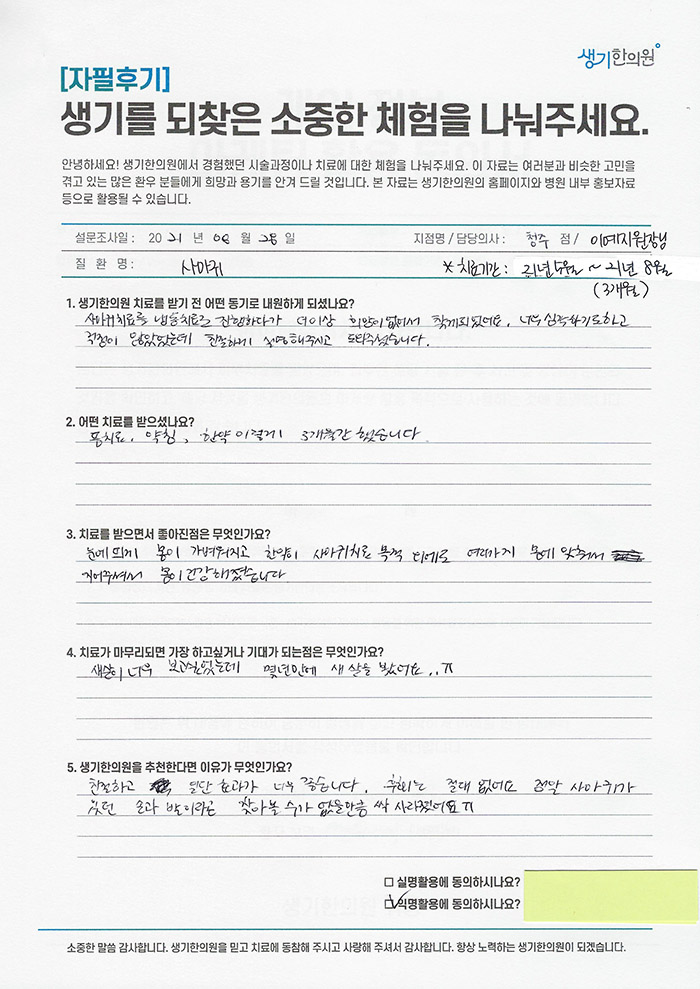 생기한의원
[자필후기]
생기를 되찾은 소중한 체험을 나눠주세요.
안녕하세요! 생기한의원에서 경험했던 시술과정이나 치료에 대한 체험을 나눠주세요. 이 자료는 여러분과 비슷한 고민을
겪고 있는 많은 환우 분들에게 희망과 용기를 안겨 드릴 것입니다. 본 자료는 생기한의원의 홈페이지와 병원 내부 홍보자료
등으로 활용될 수 있습니다.
설문조사일 : 20 21 년 08 월 28 일 지점명 / 담당의사 : 청주 점 / 이예지원장님
질 환 명 : 사마귀 * 치료기간 : 21년 5월 ~ 21년 8월
(3개월)
1. 생기한의원 치료를 받기 전 어떤 동기로 내원하게 되셨나요?
사마귀치료를 냉동치료로 진행하다가 더이상 희망이 없어서 찾게되었어요. 너무 심각하기도하고
걱정이 많았었는데 친절하게 설명해주시고 도와주셨습니다.
2. 어떤 치료를 받으셨나요?
뜸치료, 약침, 한약 이렇게 3개월간 했습니다.
3. 치료를 받으면서 좋아진점은 무엇인가요?
눈에 띄게 몸이 가벼워지고 한약이 사마귀치료 목적 이외에도 여러가지 몸에 맞춰서
지어주셔서 몸이 건강해졌습니다
4. 치료가 마무리되면 가장 하고싶거나 기대가 되는점은 무엇인가요?
새살이 너무 보고싶었는데 몇년만에 새 살을 봤어요..ㅠ
5. 생기한의원을 추천한다면 이유가 무엇인가요?
친절하고 일단 효과가 너무 좋습니다. 후회는 절대 없어요 정말 사마귀가
있던 손과 발이라곤 찾아볼 수가 없을만큼 싹 사라졌어요ㅠ
□ 실명활용에 동의하시나요?
☑ 익명활용에 동의하시나요?
소중한 말씀 감사합니다. 생기한의원을 믿고 치료에 동참해 주시고 사랑해 주셔서 감사합니다. 항상 노력하는 생기한의원이 되겠습니다.